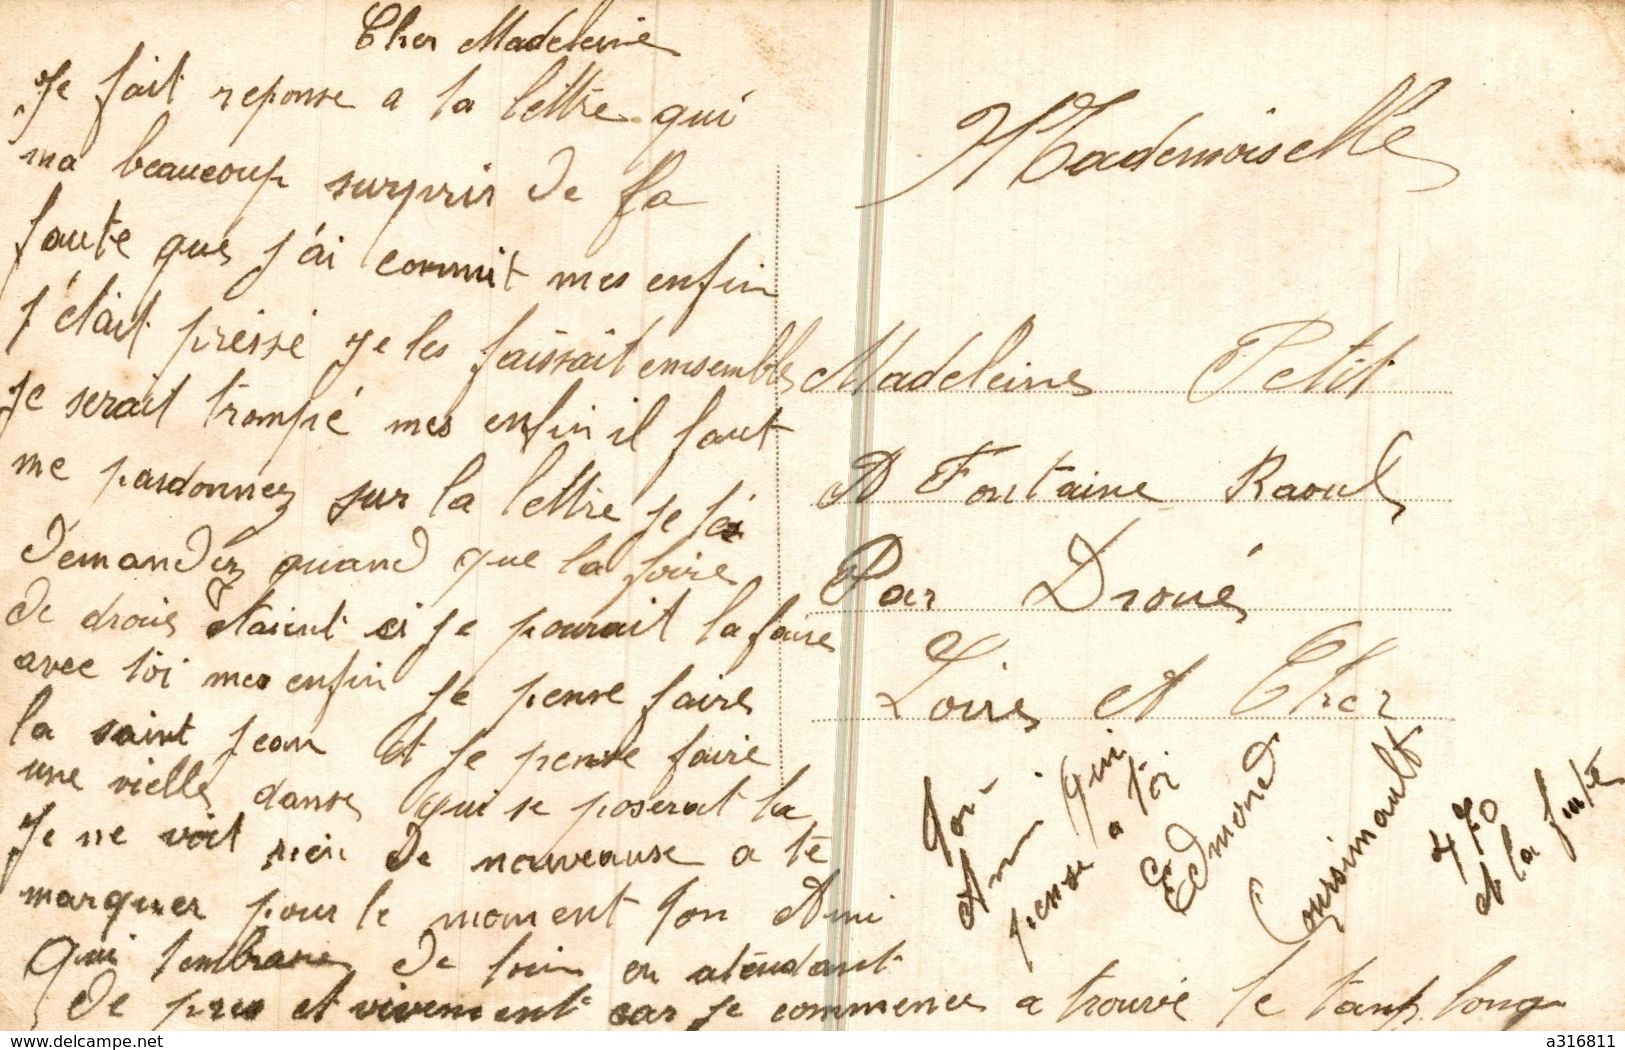 Cher Madeleine
Je fait reponse a ta lettre qui
ma beaucoup surpris de fa
faute que j'ai commit mes enfin
j'était préssé je les faissait ensembles
Je serait trompé mes enfin il faut
me pardonnez sur la lettre je te
demandez quand que la foire
de droué étaient si je pourait la faire
avec toi mes enfin je pense faire
la saint jean et je pense faire
une vielle danse qui se poserat la
Je ne voit rien de nouveause a te
marquer pour le moment ton Ami
Qui tembrasse de loin en atendant
de pres et vivement car je commence a trouvé le temps long
Mademoiselle
Madeleine Petit
A Fontaine Raoul
Par Droué
Loire et Cher
Ton
Ami qui
pense a toi
Edmond
Coursimault
470
et la suite
delcampe.net
a316811